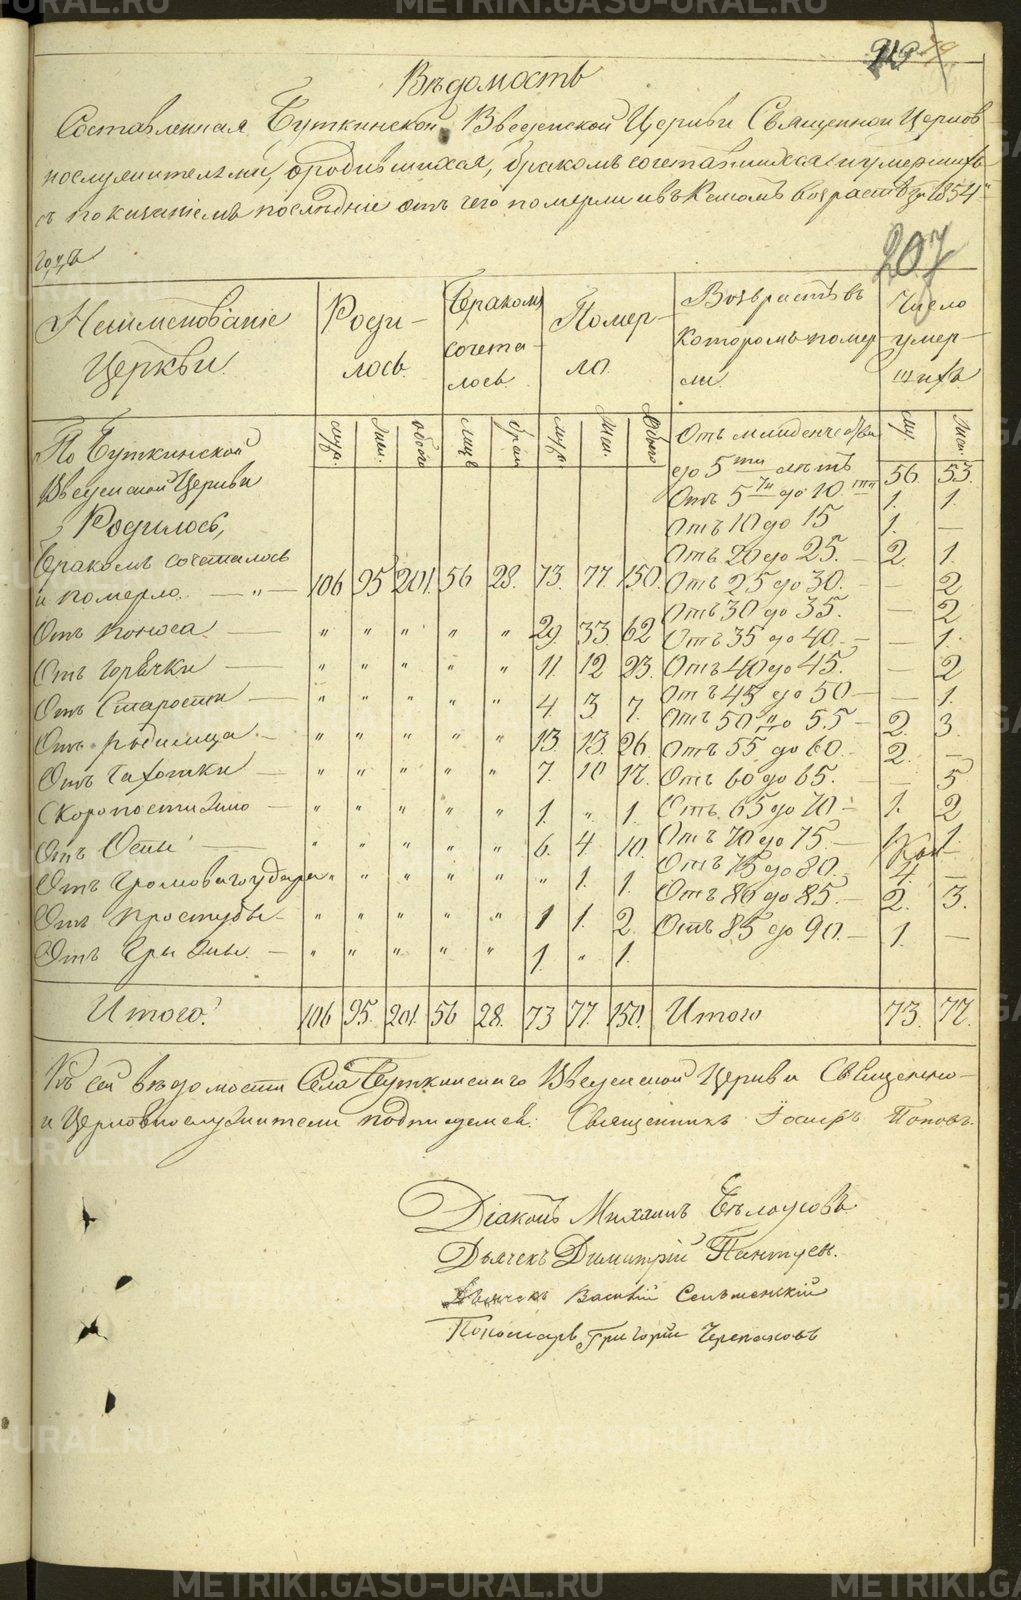 Вѣдомость
Составленная Буткинской Введенской Церкви Священно и Церков-
нослужителями, о родившихся, бракомъ сочетавшихся и умершихъ
съ показаніемъ послѣдніе отъ чего померли и въ какомъ возрастѣ за 1854й
годъ
207
Наименованіе Церкви
Роди-лось
Бракомъ сочета-лось
Помер-ло
Возврастъ въ которомъ помер-ли
Число умер-шихъ
муж. жен. обоего лицъ брак. муж. жен. Обоего
му. жен.
По Буткинской
Введенской Церкви
Родилось,
Бракомъ сочеталось
и померло. 106 95 201. 56 28. 73. 77. 150.
Отъ поноса — „ „ „ „ „ 29. 33 62
Отъ горячки — „ „ „ „ „ 11. 12 23.
Отъ Старости — „ „ „ „ „ 4. 3 7.
Отъ родимца — „ „ „ „ „ 13. 13. 26.
Отъ чахотки — „ „ „ „ „ 7. 10 17.
Скоропостижно — „ „ „ „ „ 1. „ 1.
Отъ Оспы — „ „ „ „ „ 6. 4. 10.
Отъ Громоваго удара „ „ „ „ „ „ 1. 1.
Отъ простуды — „ „ „ „ „ 1 1. 2.
Отъ Грыжи. — „ „ „ „ „ 1. „ 1.
Отъ младенчества
до 5ти лѣтъ 56. 53.
Отъ 5ти до 10ти 1. 1.
Отъ 10 до 15 1. —
Отъ 20 до 25. — 2. 1.
Отъ 25 до 30. — 2
Отъ 30 до 35. — 2
Отъ 35 до 40. — — 1.
Отъ 40 до 45. — 2
Отъ 45 до 50 — — 1.
Отъ 50 до 55 — 2. 3.
Отъ 55 до 60. — 2. —
Отъ 60 до 65. — — 5
Отъ 65 до 70 — 1. 2
Отъ 70 до 75. — 1.
Отъ 75 до 80. — 4. —
Отъ 80 до 85. — 2. 3.
Отъ 85 до 90. — 1. —
Итого. 106 95. 201. 56 28. 73 77. 150. Итого 73. 77.
Къ сей вѣдомости Села Буткинскаго Введенской Церкви Священно-
и Церковнослужители подписуемся. Священникъ Іосифъ Поповъ.
Діаконъ Михаилъ Бѣлоусовъ
Дьячекъ Димитрій
Дьячекъ Василій
Пономарь Григорій Черепановъ
METRIKI.GASO-URAL.RU